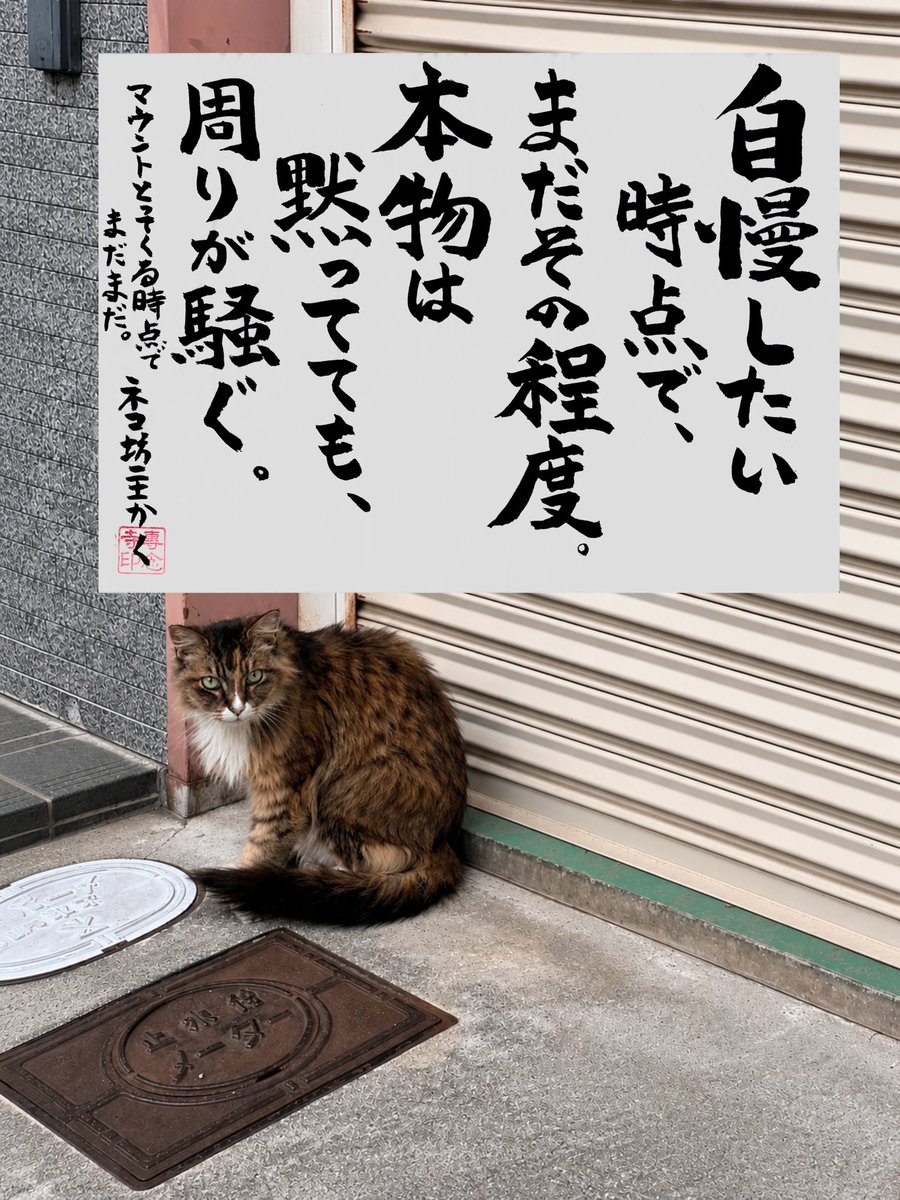 自慢したい
時点で、
まだその程度。
本物は
黙ってても、
周りが騒ぐ。
マウントとってくる時点で
まだまだ。
ネコ坊主かく
専念
寺印
止水栓
メーター